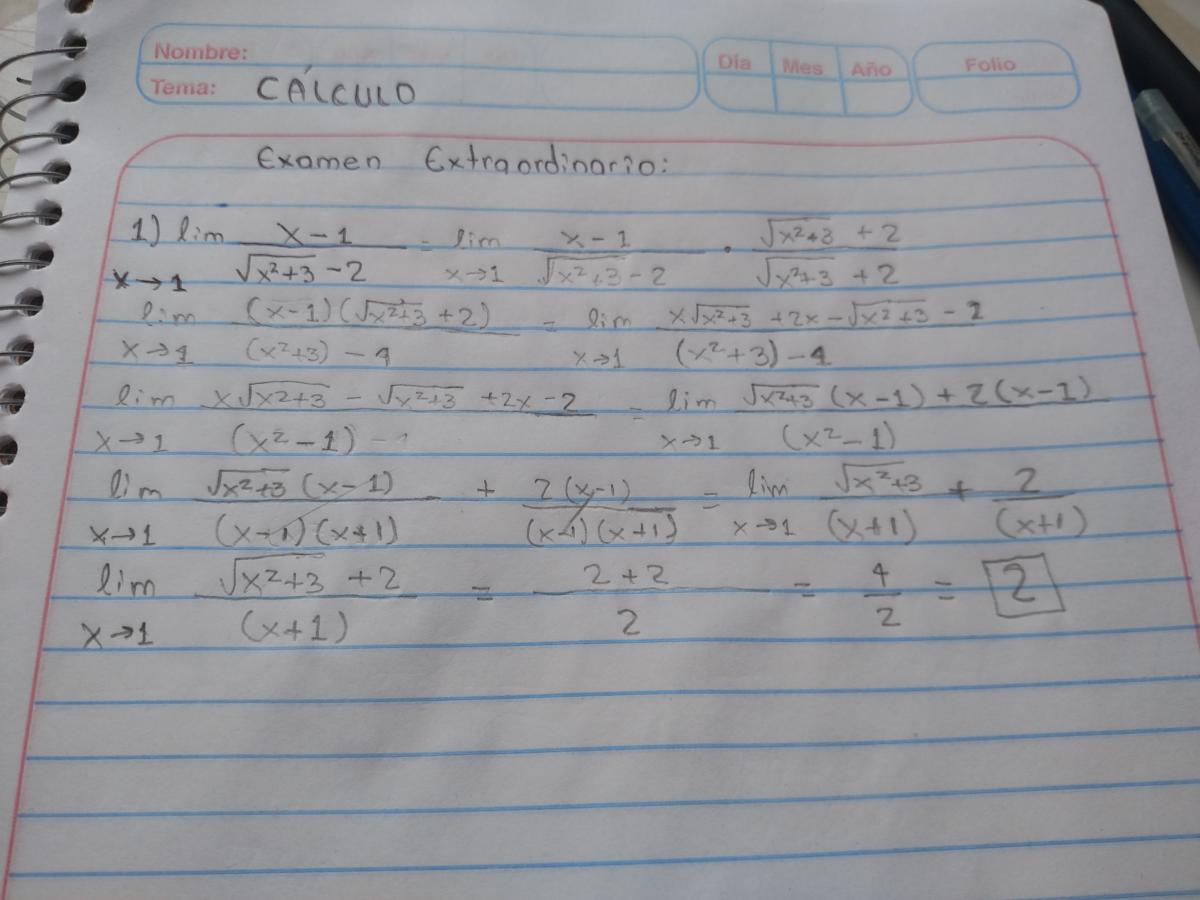 Nombre:
Tema: CÁLCULO
Día Mes Año
Folio
Examen Extraordinario:
1) lim x→1 (x-1)/(√(x²+3) -2) = lim x→1 (x-1)/(√(x²+3) -2) · (√(x²+3) +2)/(√(x²+3) +2)
lim x→1 ((x-1)(√(x²+3) +2))/((x²+3) -4) = lim x→1 (x√(x²+3) +2x -√(x²+3) -2)/((x²+3) -4)
lim x→1 (x√(x²+3) - √(x²+3) +2x -2)/(x²-1) = lim x→1 (√(x²+3) (x-1) + 2(x-1))/(x²-1)
lim x→1 (√(x²+3) (x-1))/((x-1)(x+1)) + (2(x-1))/((x-1)(x+1)) = lim x→1 √(x²+3)/(x+1) + 2/(x+1)
lim x→1 (√(x²+3) +2)/(x+1) = (2+2)/2 = 4/2 = 2